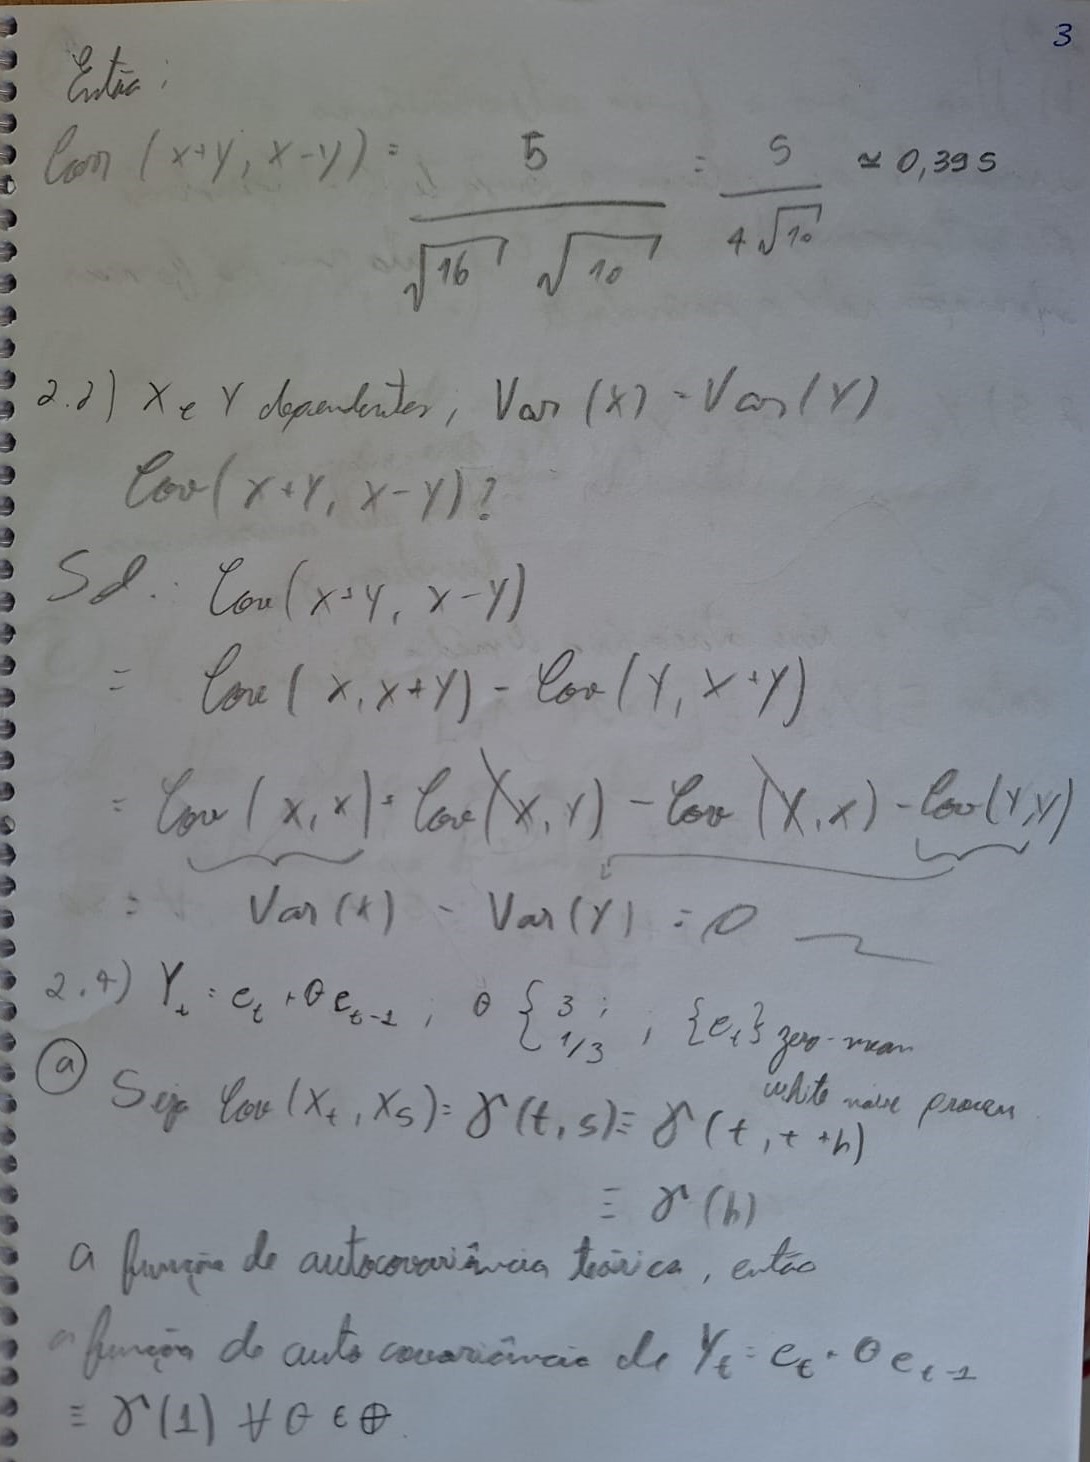 3
Então:
Corr (X+Y, X-Y) = 5 / √16 √10 = 5 / 4√10 ≃ 0,395
2.2) X e Y dependentes, Var (X) = Var (Y)
Cov (X+Y, X-Y)?
Sol.: Cov (X+Y, X-Y)
= Cov (X, X+Y) - Cov (Y, X+Y)
= Cov (X, X) + Cov (X, Y) - Cov (Y, X) - Cov (Y,Y)
= Var (X) - Var (Y) = 0
2.4) Y_t = e_t + θ e_{t-1} , θ { 3 ; 1/3 , {e_t} zero-mean
white noise process
(a) Seja Cov (X_t, X_s) = γ (t, s) ≡ γ (t, t+h)
≡ γ (h)
a função de autocovariância teórica, então
a função de auto covariância de Y_t = e_t + θ e_{t-1}
≡ γ (1) ∀ θ ∈ Θ.